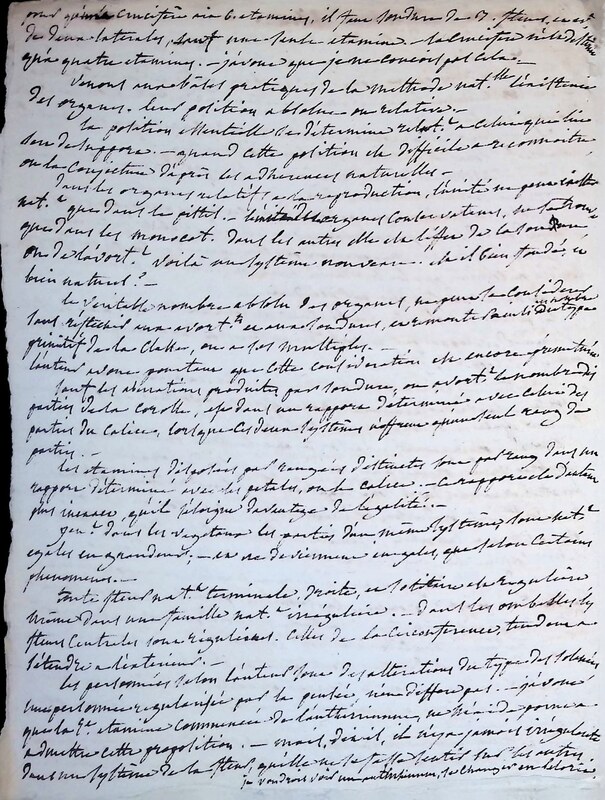 crucifère a 6. etamines, il faut soudure de 3. fleurs, en est
de deux laterales, sauf une seule etamine. — la crucifère n'a de
qu'a quatre etamines. — j'avoue que je ne conçois pas cela. —
Venons aux bases pratiques de la methode nat.lle l'existence
des organes. leur position absolue ou relative. —
la position essentielle se determine relat.t a celui qui leur
sert de support. — quand cette position est difficile a reconnoitre
on la conjecture d'après les adherences naturelles. —
Dans les organes relatifs a la reproduction, l'unité ne peut exister
nat.t que dans le pistil. — organes conservateurs, ne se trouve
que dans les monocot. dans les autres elle est l'effet de la soudure
ou de l'avort.t voilà un système nouveau. est il bien fondé, est
bien naturel? —
le veritable nombre absolu des organes, ne peut se considerer
sans reflechir aux avort.ts et aux soudures, en remontant au nombre du type
primitif de la classe, ou a ses multiples. —
l'auteur avoue pourtant que cette consideration est encore prematurée
sauf les aberrations produites par soudure, ou avort.t le nombre des
parties de la corolle, est dans un rapport determiné avec celui des
parties du calice, lorsque ces deux systèmes n'offrent qu'un seul rang de
parties. —
les etamines disposées par rangées distinctes sont par rang dans un
rapport déterminé avec les petales, ou le calice. — ce rapport est d'autant
plus inexact, qu'il s'eloigne davantage de l'egalité. —
Gen.t dans les vegetaux les parties d'un même système sont nat.t
egales en grandeur; — et ne deviennent inegales, que selon certains
phenomenes. —
toute fleur nat.t terminale, droite, et solitaire est regulière
même dans une famille nat.t irrégulière. — dans les ombelles les
fleurs centrales sont regulieres. celles de la circonference, tendent a
s'étendre a l'exterieur. —
les personnées selon l'auteur sont des alterations du type des solanées
une personnée regularisée par la pensée, n'en differe pas. — j'avoue
que la 5.e etamine commencée de l'antirrhinum, ne m'aide pas a
admettre cette proposition. — mais, dit-il, il n'y a jamais irrégularité
dans un système de la fleur, qu'elle ne se fasse sentir sur les autres
je voudrois voir un antirrhinum, se changer en